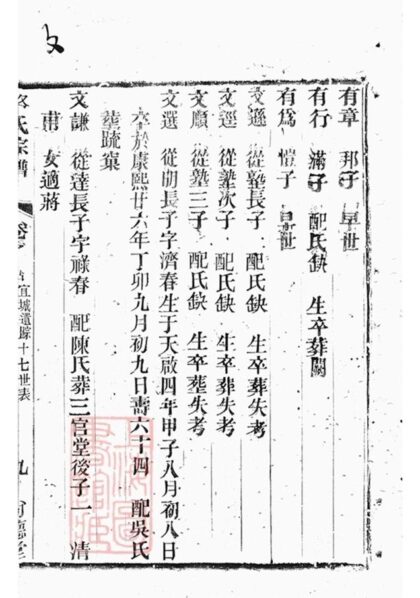 文
有章 邦子 早世
有行 滿子 配氏缺 生卒葬闕
有爲 愷子 早世
文遜 從塾長子 配氏缺 生卒葬失考
文逕 從塾次子 配氏缺 生卒葬失考
文願 從塾三子 配氏缺 生卒塟失考
文選 從胡長子字濟春生于天啟四年甲子八月初八日
卒於康熙廿六年丁卯九月初九日壽六十四 配吳氏
塟疏窠
文謙 從達長子字祿春 配陳氏葬三宫堂後子一 清
甫 女適蔣
氏宗譜 卷 宜城遺踪十七世表 九